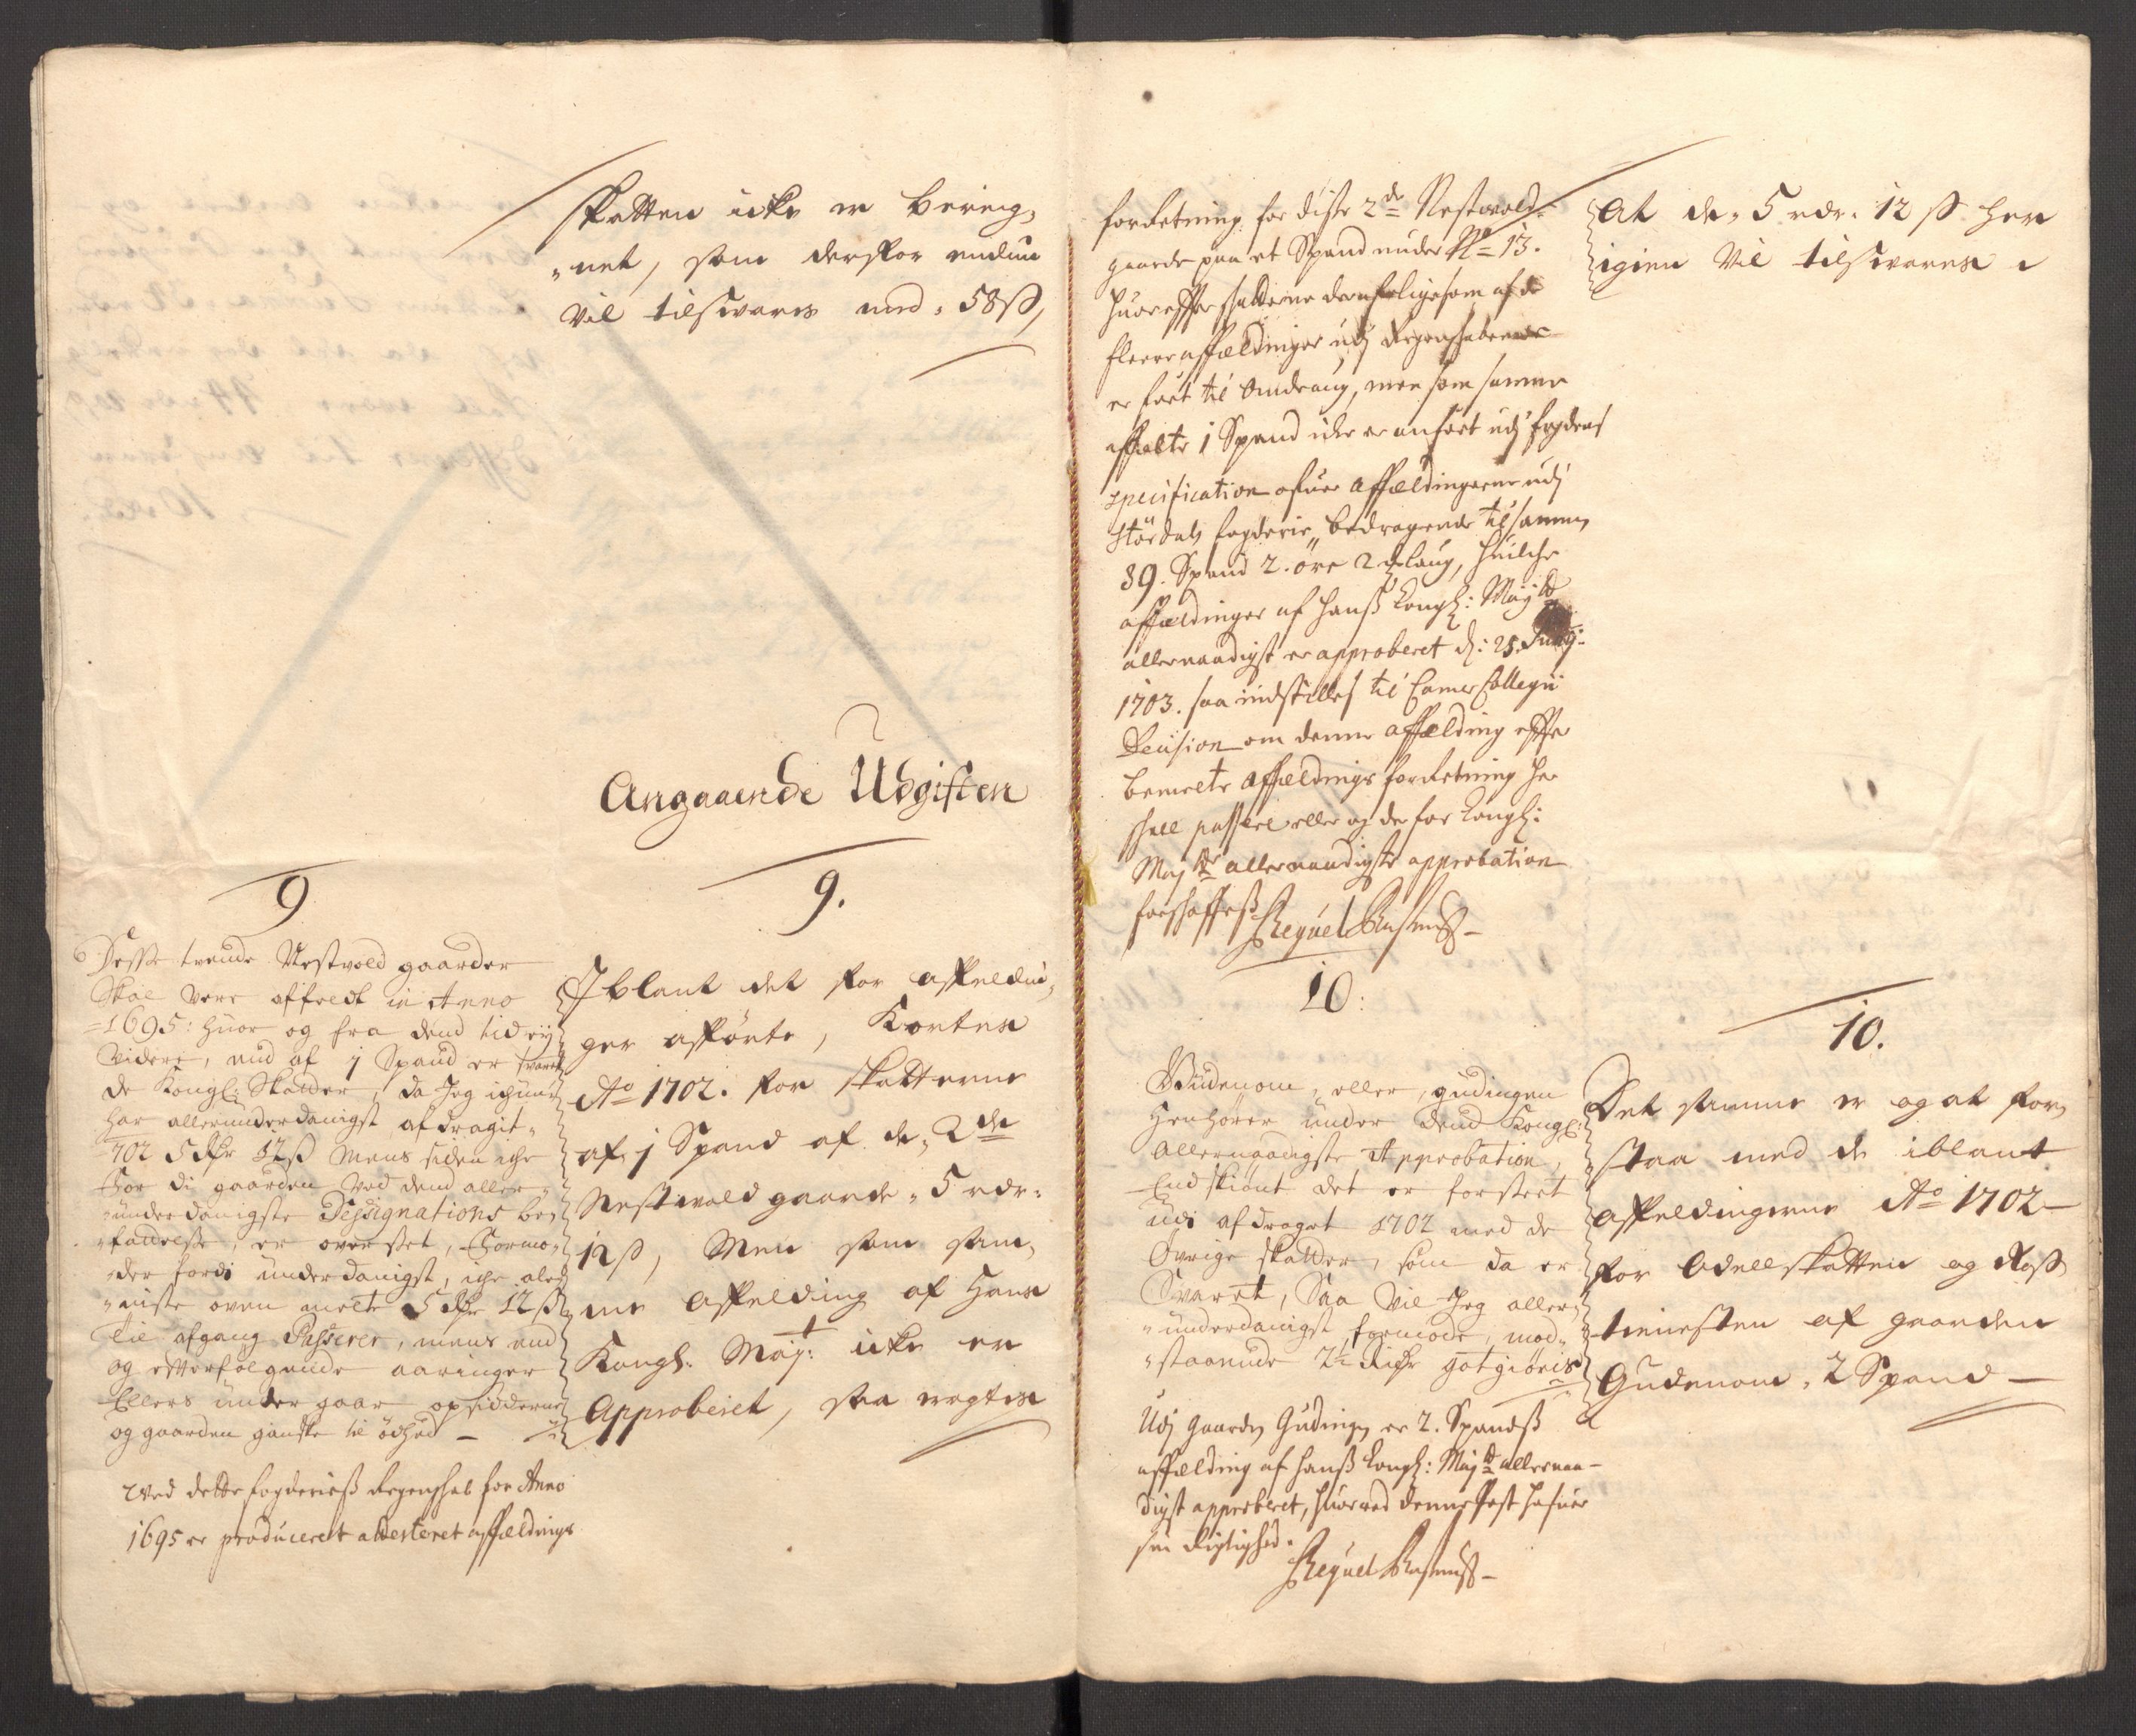 Skatten icke er bereig„
„net, som derfor endnu
Vil tilsvaris med „ 58 ß,
Angaaende Udgiften
9
Desse tvende Nestvold gaarder
Skal vere affeldt in Anno
1695: huor og fra dend tid ey
Videre, end af 1 Spand er svaret
de Kongl: Skatter, da Jeg ichun
har allerunderdanigst afdragit
702 5 Rdr 12 ß Mens siden iche
for di gaarden ved dend aller„
„underdanigste Designations be„
„fattelse, er over set, Formo„
„der fordi underdanigst, iche ale„
„niste oven melte 5 Rdr 12 ß
til afgang Passerer, mens end
og efterfølgende aaringer
Ellers under gaar opsidderne
og gaarden ganske til ødhed —
Ved dette fogderies Regenskab for Anno
1695 er produceret attesteret affældings
9.
Iblant det for affeldin„
ger afførte, Kortes
Ao 1702. for Skatterne
af 1 Spand af de 2de
Nestvold gaarde „ 5 rdr.
12 ß, Men som sam„
me affelding af Hans
Kongl: Maj:t icke er
Approberet, saa eragtes
forretning for disse 2de Nestvold
gaarde paa et Spand under No 13.
huorefter skatterne derufor ligesom af de
fleere affældinger udj Regenskaberne
er ført til Omdrag, men som samme
affældte 1 Spand iche er anført udj fogdens
specification ofuer affældingerne udj
Stördals fogderie, bedragende tilsamen
39. Spand 2. öre 2 Laug, huilche
affældinger af hanß Kongl: Mayts
allernaadigst er approberet d: 25. Junij
1703. saa indstilles til Camer Collegii
Decision om denne affælding efter
bemelte affældings forretning her
skal passere eller og derfor Kongl:
Majts allernaadigste approbation
forskaffes
Sequel Rasmuss
10:
Gudenom, eller, gudingen
Henhører under dend Kongl:
Allernaadigste Approbation,
Endskiønt det er forsteet
udi afdraget 1702 med de
Øvrige skatter, som da er
Svaret, Saa Vil Jeg aller„
„underdanigst formode, mod„
„staaende 2½ Rdr gotgiøris
Udj gaarden Gudingen er 2. Spandß
affælding af hanß Kongl: Majts allernaa„
digst approberet, huorved denne Post hafuer
sin Rigtighed.
Sequel Rasmuss
At de „ 5 rdr. 12 ß her
igien Vil tilsvares
10.
Det samme er og at for„
„staa med de iblant
affeldingerne Ao 1702
for Odellskatten og Ross
tienesten af gaarden
Gudenom „ 2 Spand —